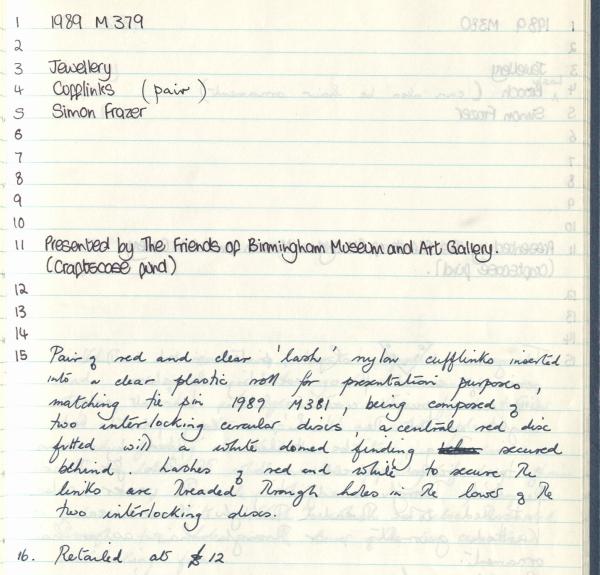 1 1989 M 379
2
3 Jewellery
4 Cofflinks (pair)
5 Simon Frazer
6
7
8
9
10
11 Presented by The Friends of Birmingham Museum and Art Gallery.
(Craftscase fund)
12
13
14
15 Pair of red and clear 'lash' nylon cufflinks inserted
into a clear plastic roll for presentation purposes,
matching tie pin 1989 M381, being composed of
two interlocking circular discs a central red disc
fitted with a white domed finding secured
behind. Lashes of red and white to secure the
links are threaded through holes in the lower of the
two interlocking discs.
16. Retailed at £12